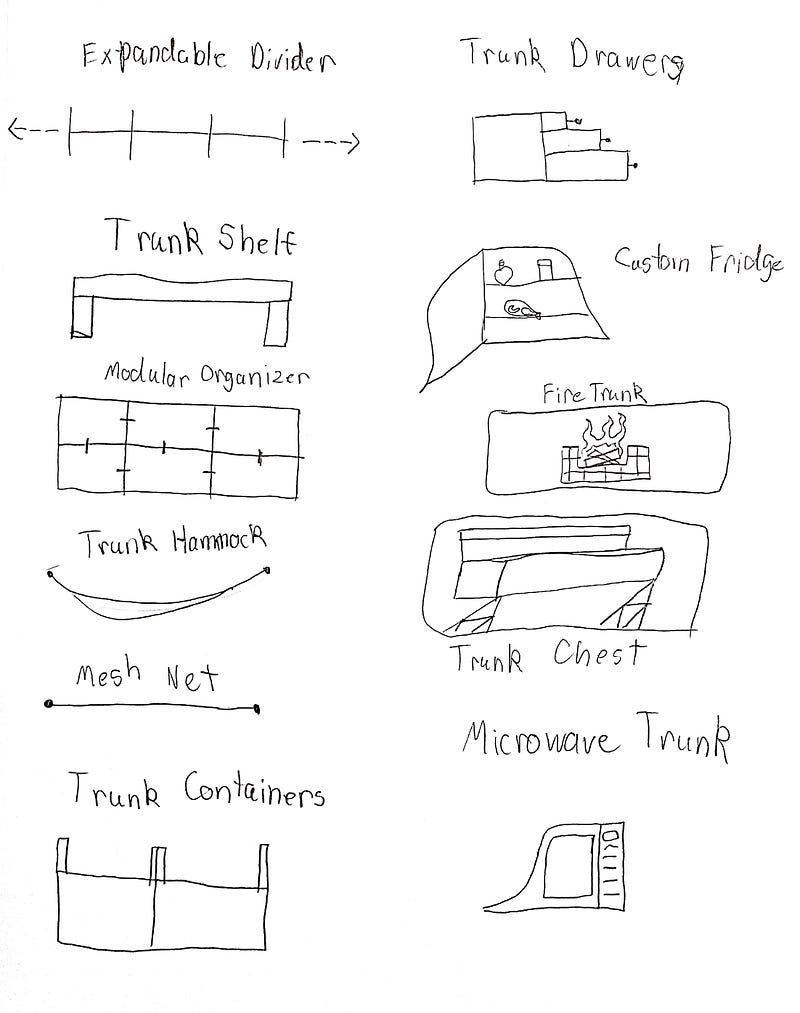 Expandable Divider
Trunk Shelf
Modular Organizer
Trunk Hammock
Mesh Net
Trunk Containers
Trunk Drawers
Custom Fridge
Fire Trunk
Trunk Chest
Microwave Trunk